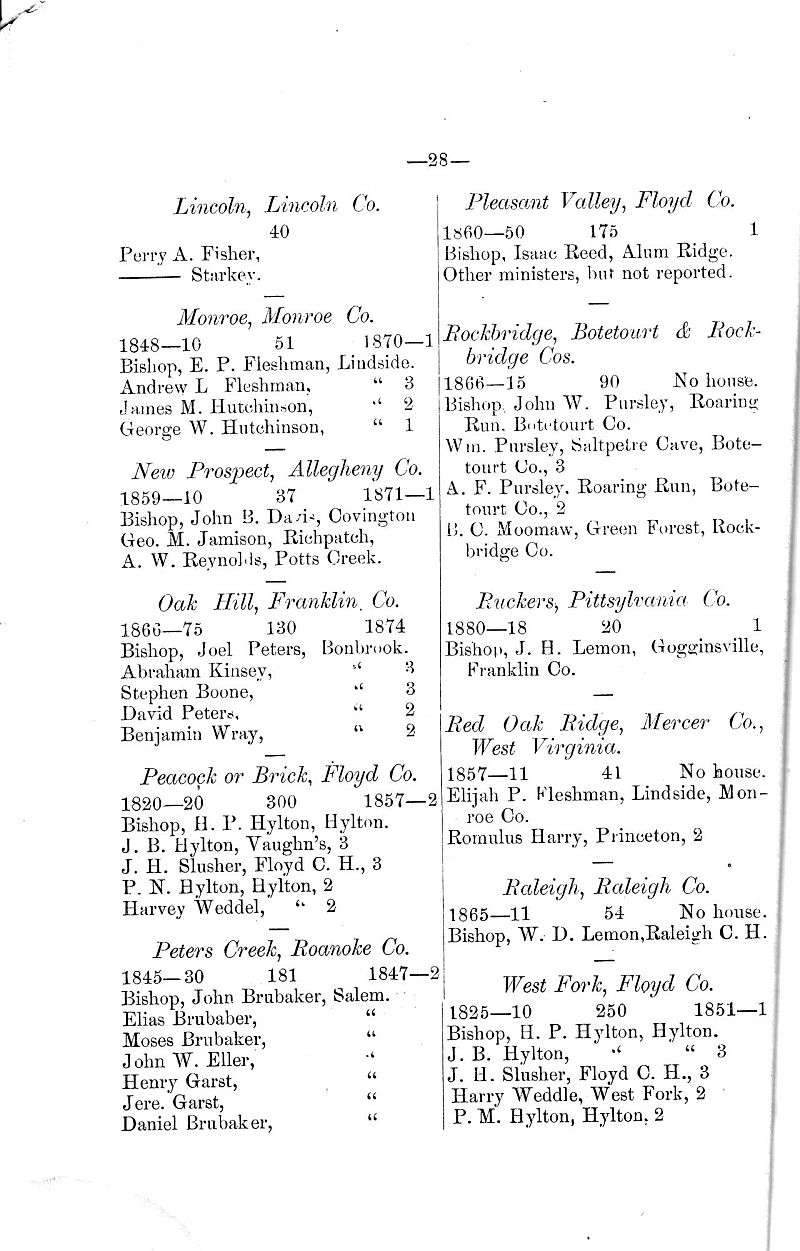 —28—
Lincoln, Lincoln Co.
40
Perry A. Fisher,
——— Starkey.
Monroe, Monroe Co.
1848—10 51 1870—1
Bishop, E. P. Fleshman, Lindside.
Andrew L Fleshman, “ 3
James M. Hutchinson, “ 2
George W. Hutchinson, “ 1
New Prospect, Allegheny Co.
1859—10 37 1871—1
Bishop, John B. Davis, Covington
Geo. M. Jamison, Richpatch,
A. W. Reynolds, Potts Creek.
Oak Hill, Franklin. Co.
1866—75 130 1874
Bishop, Joel Peters, Bonbrook.
Abraham Kinsey, “ 3
Stephen Boone, “ 3
David Peters, “ 2
Benjamin Wray, “ 2
Peacock or Brick, Floyd Co.
1820—20 300 1857—2
Bishop, H. P. Hylton, Hylton.
J. B. Hylton, Vaughn's, 3
J. H. Slusher, Floyd C. H., 3
P. N. Hylton, Hylton, 2
Harvey Weddel, “ 2
Peters Creek, Roanoke Co.
1845—30 181 1847—2
Bishop, John Brubaker, Salem.
Elias Brubaber, “
Moses Brubaker, “
John W. Eller, “
Henry Garst, “
Jere. Garst, “
Daniel Brubaker, “
Pleasant Valley, Floyd Co.
1860—50 175 1
Bishop, Isaac Reed, Alum Ridge.
Other ministers, but not reported.
Rockbridge, Botetourt & Rock-
bridge Cos.
1866—15 90 No house.
Bishop, John W. Pursley, Roaring
Run, Botetourt Co.
Wm. Pursley, Saltpetre Cave, Bote-
tourt Co., 3
A. F. Pursley, Roaring Run, Bote-
tourt Co., 2
B. C. Moomaw, Green Forest, Rock-
bridge Co.
Ruckers, Pittsylvania Co.
1880—18 20 1
Bishop, J. H. Lemon, Gogginsville,
Franklin Co.
Red Oak Ridge, Mercer Co.,
West Virginia.
1857—11 41 No house.
Elijah P. Fleshman, Lindside, Mon-
roe Co.
Romulus Harry, Princeton, 2
Raleigh, Raleigh Co.
1865—11 54 No house.
Bishop, W. D. Lemon,Raleigh C. H.
West Fork, Floyd Co.
1825—10 250 1851—1
Bishop, H. P. Hylton, Hylton.
J. B. Hylton, “ “ 3
J. H. Slusher, Floyd C. H., 3
Harry Weddle, West Fork, 2
P. M. Hylton, Hylton, 2